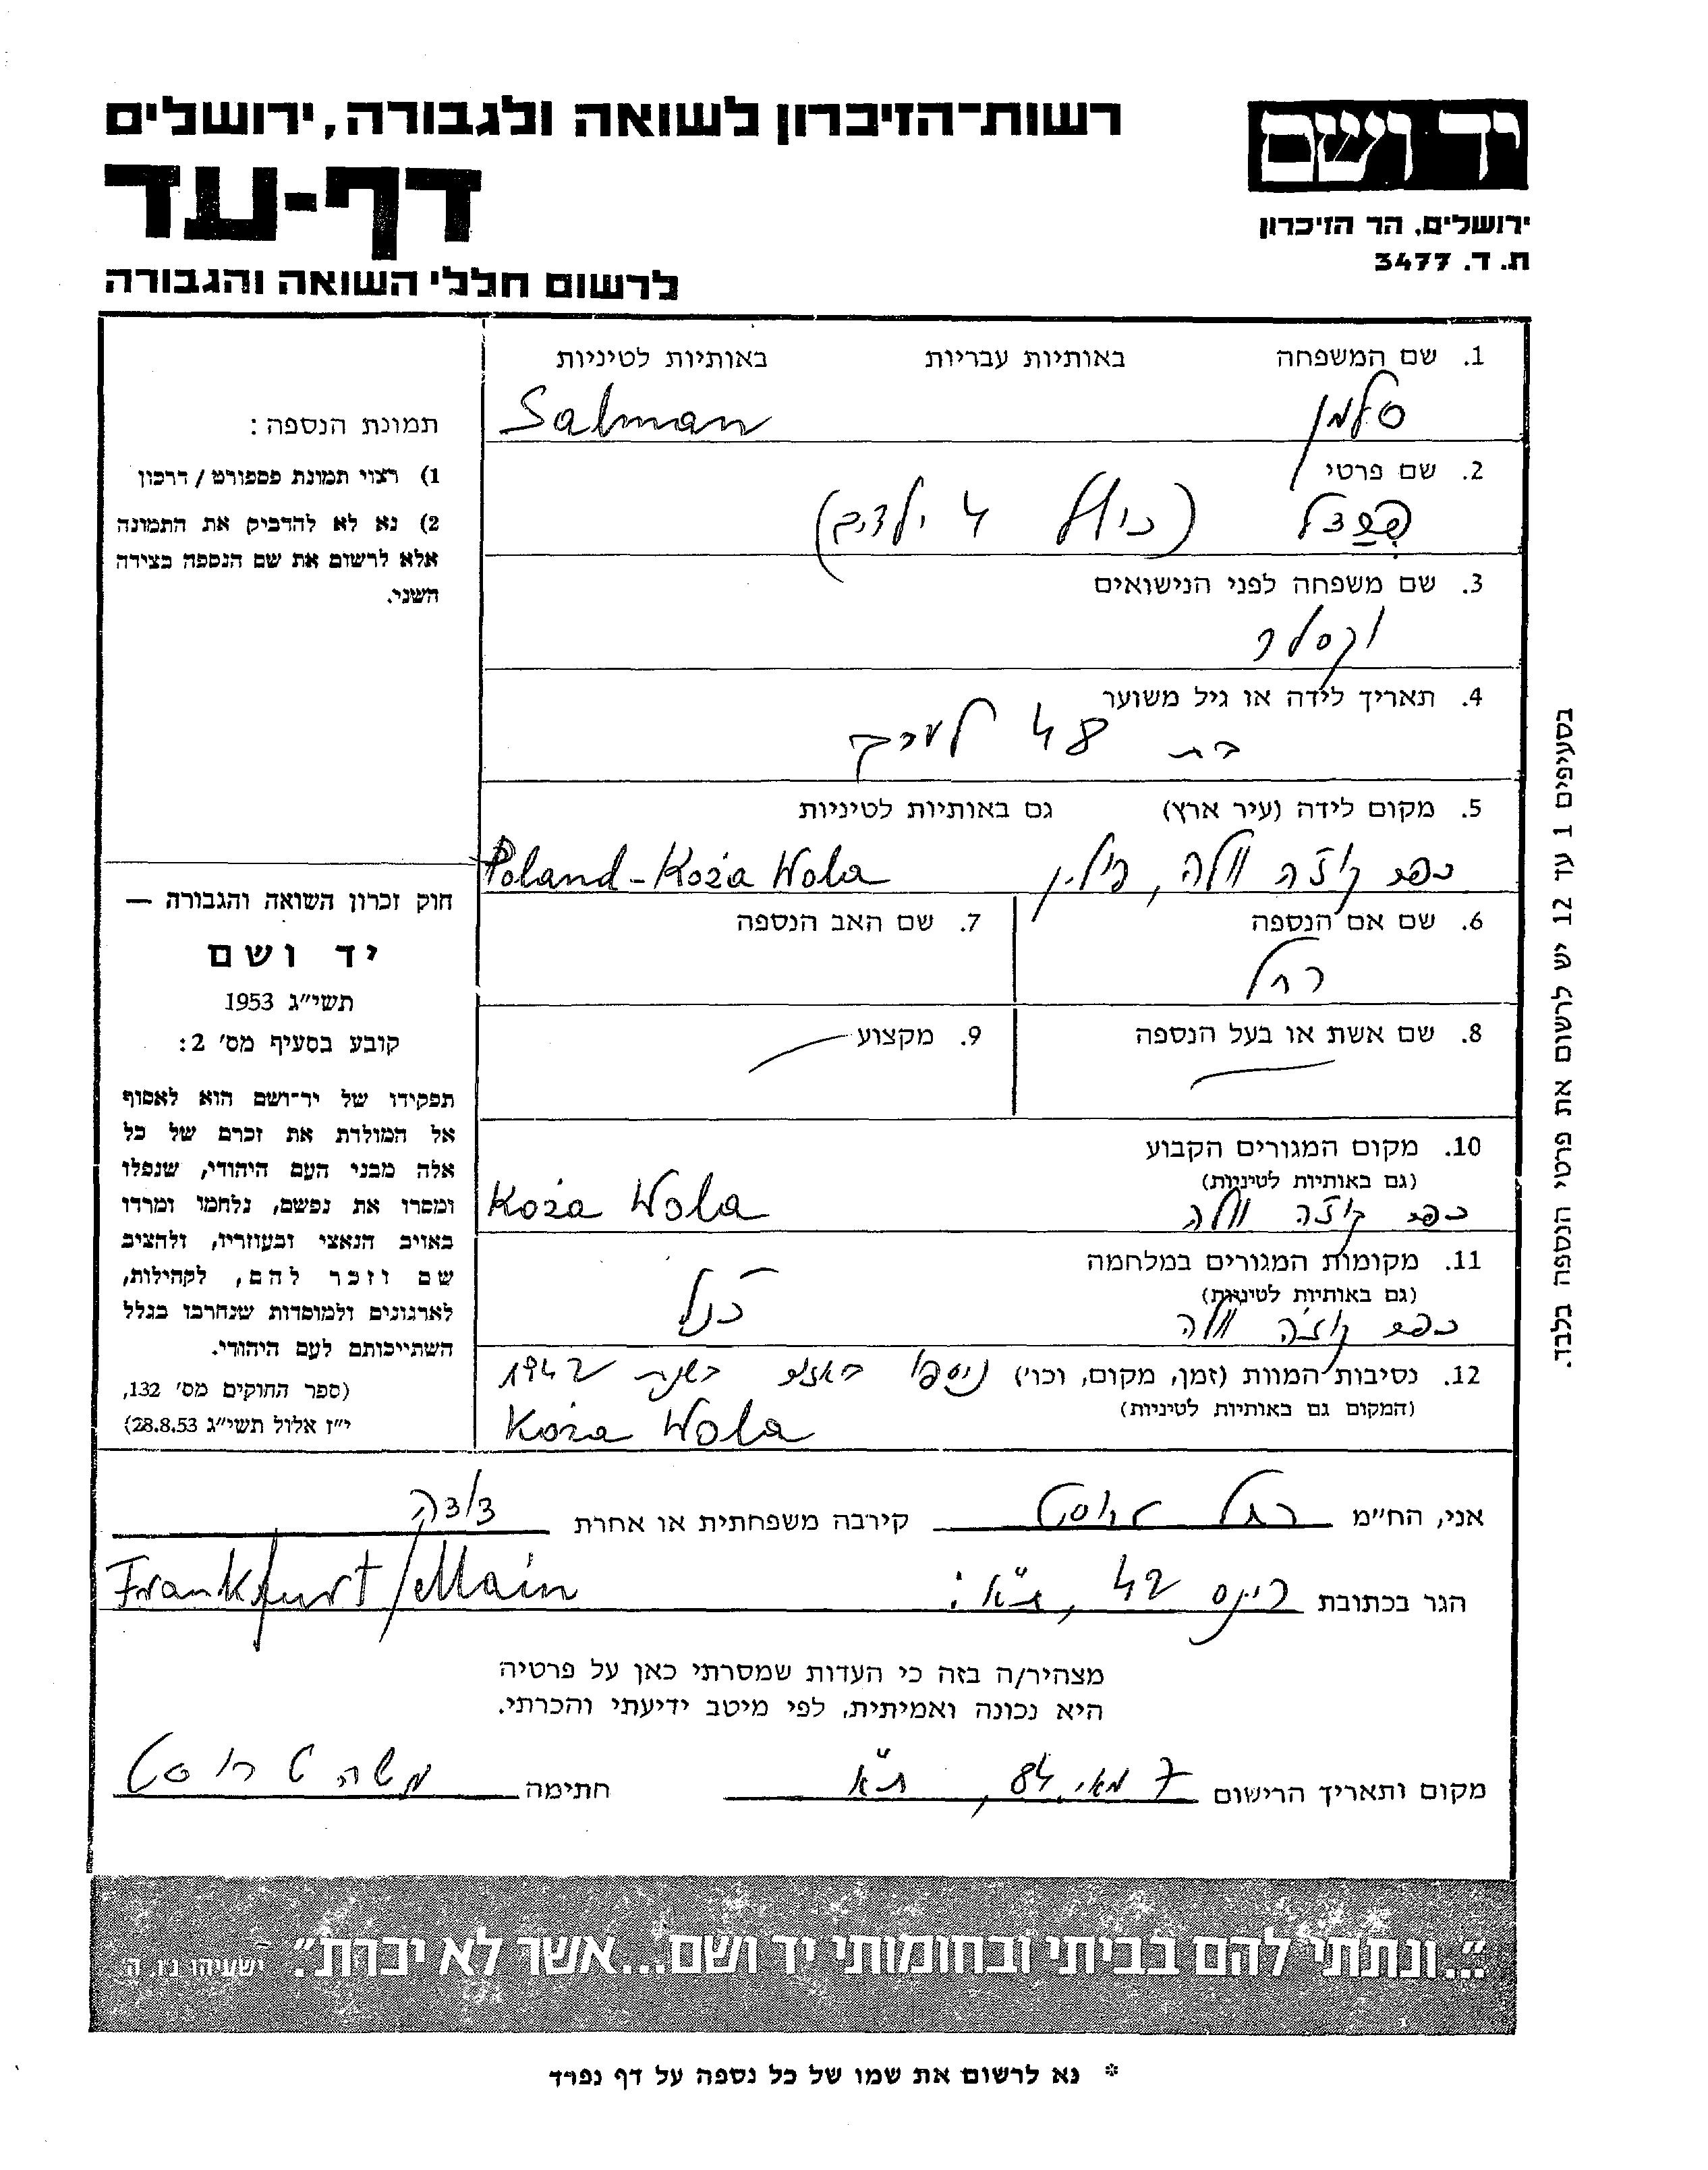 רשות-הזיכרון לשואה ולגבורה, ירושלים
דף-עד
לרשום חללי השואה והגבורה
יד ושם
ירושלים, הר הזיכרון
ת. ד. 3477
1. שם המשפחה באותיות עבריות באותיות לטיניות
סלמן Salman
2. שם פרטי
(כולל 4 ילדים)
3. שם משפחה לפני הנישואים
וקסלר
4. תאריך לידה או גיל משוער
בת 48 לערך
5. מקום לידה (עיר ארץ) גם באותיות לטיניות
כפר קוז'ה וולה, פולין Poland-Koża Wola
6. שם אם הנספה
רחל
7. שם האב הנספה
8. שם אשת או בעל הנספה
9. מקצוע
10. מקום המגורים הקבוע
(גם באותיות לטיניות)
כפר קוז'ה וולה Koża Wola
11. מקומות המגורים במלחמה
(גם באותיות לטיניות)
כפר קוז'ה וולה כנ"ל
12. נסיבות המוות (זמן, מקום, וכו') ניספו בשנת 1942
(המקום גם באותיות לטיניות)
Koża Wola
תמונת הנספה:
1) רצוי תמונת פספורט / דרכון
2) נא לא להדביק את התמונה
אלא לרשום את שם הנספה בצידה
השני.
חוק זכרון השואה והגבורה —
יד ושם
תשי״ג 1953
קובע בסעיף מס׳ 2:
תפקידו של יד־ושם הוא לאסוף
אל המולדת את זכרם של כל
אלה מבני העם היהודי, שנפלו
ומסרו את נפשם, נלחמו ומרדו
באויב הנאצי ובעוזריו, ולהציב
שם וזכר להם, לקהילות,
לארגונים ולמוסדות שנחרבו בגלל
השתייכותם לעם היהודי.
(ספר החוקים מס׳ 132,
י״ז אלול תשי״ג 28.8.53)
בסעיפים 1 עד 12 יש לרשום את פרטי הנספה בלבד.
אני, הח״מ רחל קירבה משפחתית או אחרת דודה
הגר בכתובת 42, ת"א: Frankfurt/Main
מצהיר/ה בזה כי העדות שמסרתי כאן על פרטיה
היא נכונה ואמיתית, לפי מיטב ידיעתי והכרתי.
מקום ותאריך הרישום 7 מאי 84, ת"א חתימה משה
"...ונתתי להם בביתי ובחומותי יד ושם...אשר לא יכרת". ישעיהו נ״ו, ה
* נא לרשום את שמו של כל נספה על דף נפרד